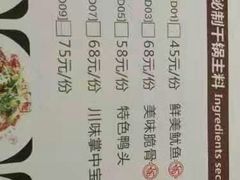 秘制干锅主料
Ingredients sec
D01] 45元/份 鲜美鱿鱼
D03] 68元/份 美味脆骨
D05] 58元/份 特色鸭头
D07] 68元/份 川味掌中宝
D09] 75元/份